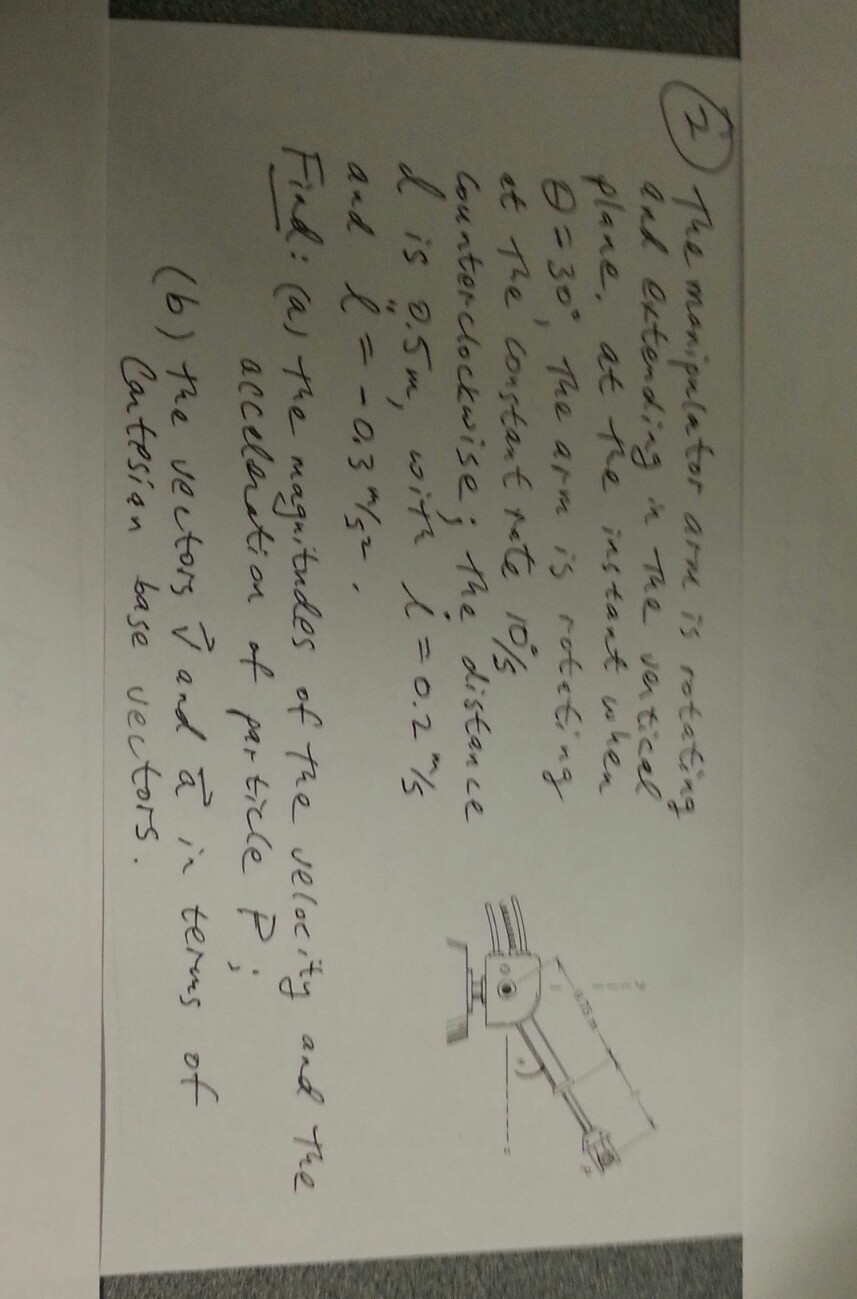 2 The manipulator arm is rotating
and extending in the vertical
plane. at the instant when
θ = 30°, the arm is rotating
at the constant rate 10°/s
counterclockwise; the distance
l is 0.5 m, with l̇ = 0.2 m/s
and l̈ = -0.3 m/s².
Find: (a) the magnitudes of the velocity and the
acceleration of particle P;
(b) the vectors v⃗ and a⃗ in terms of
Cartesian base vectors.
0.75 m
P